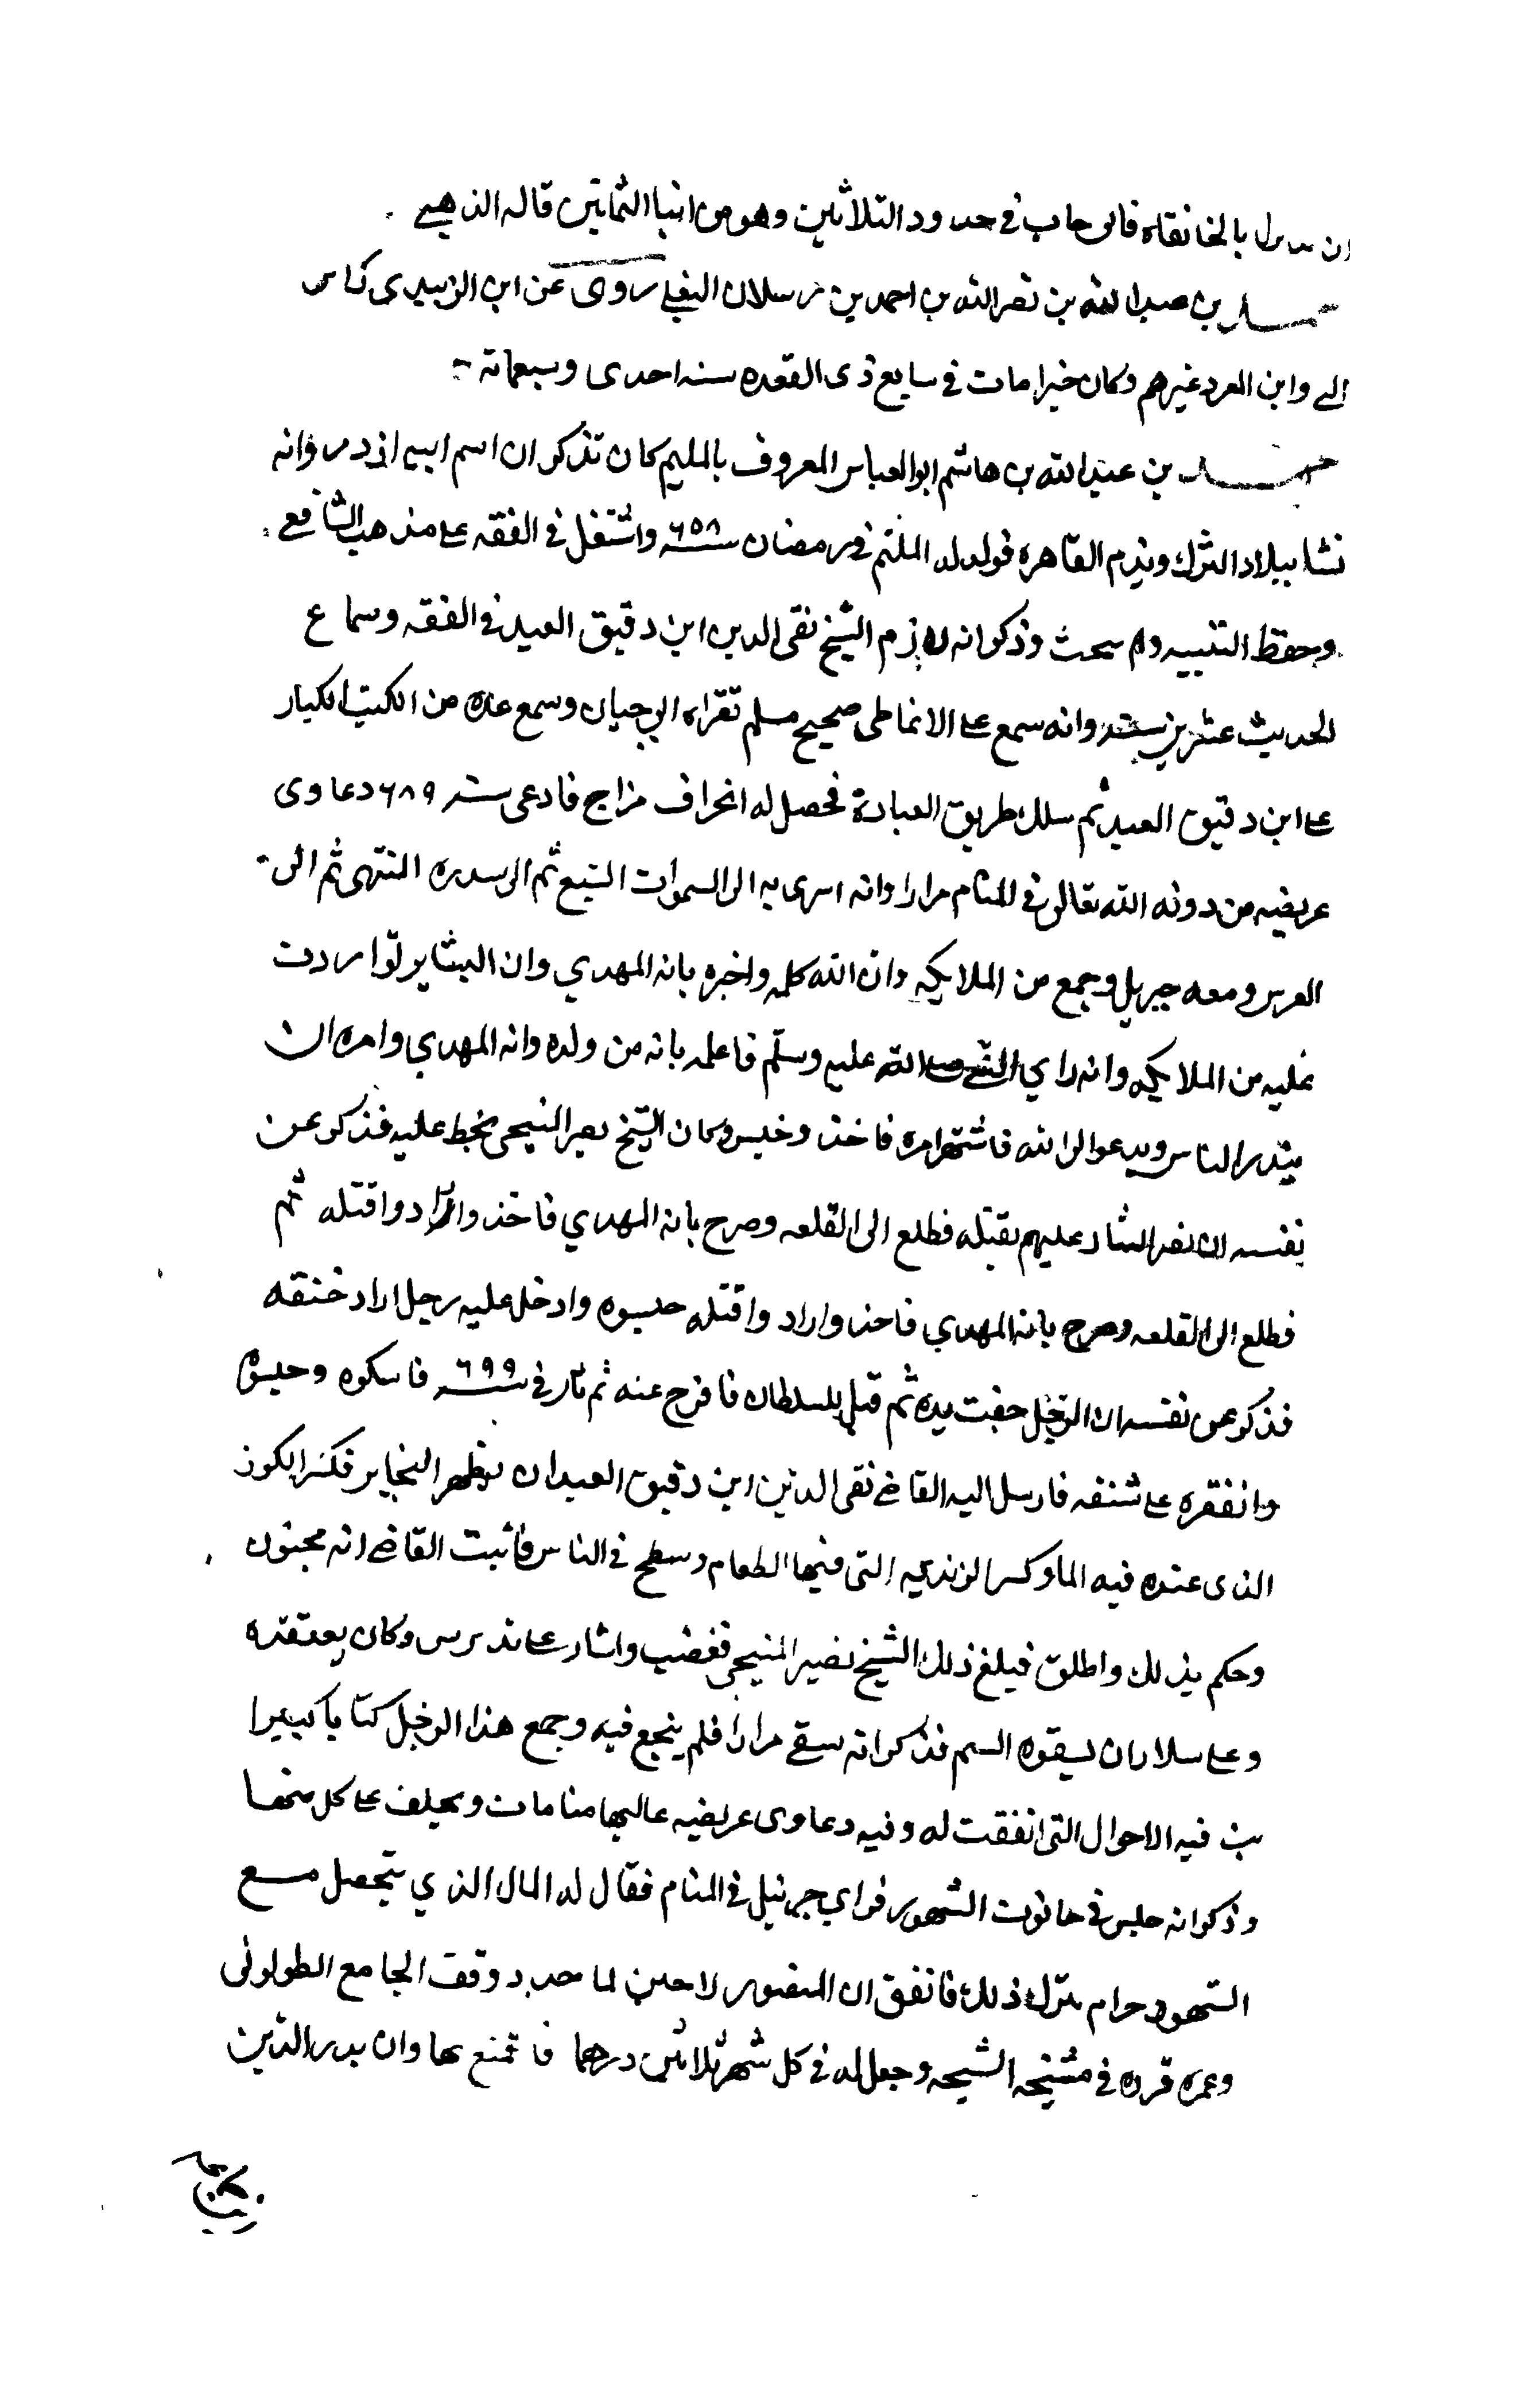 ان سرل بالخانقاه فابى جاب في حدود الثلاثين وهو من انبا الثمانين قاله الذهبي .
احمد بن عبد الله بن نصر الله بن احمد بن رسلان البعلي روى عن ابن الزبيدي كاس
الى وابن العرد غيرهم وكان خيرا مات في سابع ذى القعده سنه احدى وسبعمائة
احمد بن عبد الله بن هاشم ابو العباس المعروف بالملثم كان تذكر ان اسم ابيه ازدمر وانه
نشا ببلاد الترك وقدم القاهره فولد له الملثم في رمضان سنة ٦٥٨ واشتغل في الفقه على مذهب الشافعي
وحفظ التنبيه ولم يبحث وذكر انه لازم الشيخ تقى الدين ابن دقيق العيد في الفقه وسماع
الحديث عشرين سنه وانه سمع على الانماطى صحيح مسلم تقراه ابى حيان وسمع عده من الكتب الكبار
على ابن دقيق العيد ثم سلك طريق العبادة فحصل له انحراف مزاج فادعى سنة ٦٨٩ دعاوى
عريضه من رويه الله تعالى في المنام مرارا وانه اسرى به الى السموات السبع ثم الى سدره المنتهى ثم الى
العرس ومعه جبريل وجمع من الملايكه وان الله كلمه واخبره بانه المهدي وان البشاير تواردت
عليه من الملايكه وانه راي النبي صلى الله عليه وسلم فاعلمه بانه من ولده وانه المهدي وامره ان
ينذر الناس ويدعو الى الله فاشتهر امره فاخذ وحبس وكان الشيخ نصر المنيجى يحط عليه فذكر عن
نفسه ان نصر اشار عليهم بقتله فطلع الى القلعه وصرح بانه المهدي فاخذ وارادوا قتله ثم
فطلع الى القلعه وصرح بانه المهدي فاخذ وارادوا قتله حبسوه وادخل عليه رجل اراد خنقه
فذكر عن نفسه ان الرجل جفت يده ثم قيل للسلطان فافرج عنه ثم ثار في سنة ٦٩٩ فامسكوه وحبسوه
واتفقره على شنقه فارسل اليه القاضي تقى الدين ابن دقيق العيد ان يظهر التجانن فكسر الكوز
الذى عنده فيه الما وكسر الزبديه التى فيها الطعام وسطح في الناس فاثبت القاضي انه مجنون
وحكم بذلك واطلق فبلغ ذلك الشيخ نصير المنيجى فغضب واشار على بيبرس وكان يعتقده
وعلى سلار ان يسقوه السم فذكر انه سقي مرارا فلم ينجع فيه وجمع هذا الرجل كتابا كبيرا
بين فيه الاحوال التى اتفقت له وفيه دعاوى عريضه غالبها منامات ويحلف على كل منها
وذكر انه جلس في حانوت الشهود فراي جبرئيل في المنام فقال له المال الذي يتحصل مع
الشهود حرام بترك ذلك فاتفق ان المنصور لاجين لما جدد وقف الجامع الطولونى
وعمره قرره في مشيخه السبحه وجعل له في كل شهر ثلاثين درهما فاتمنع بها وان بدر الدين